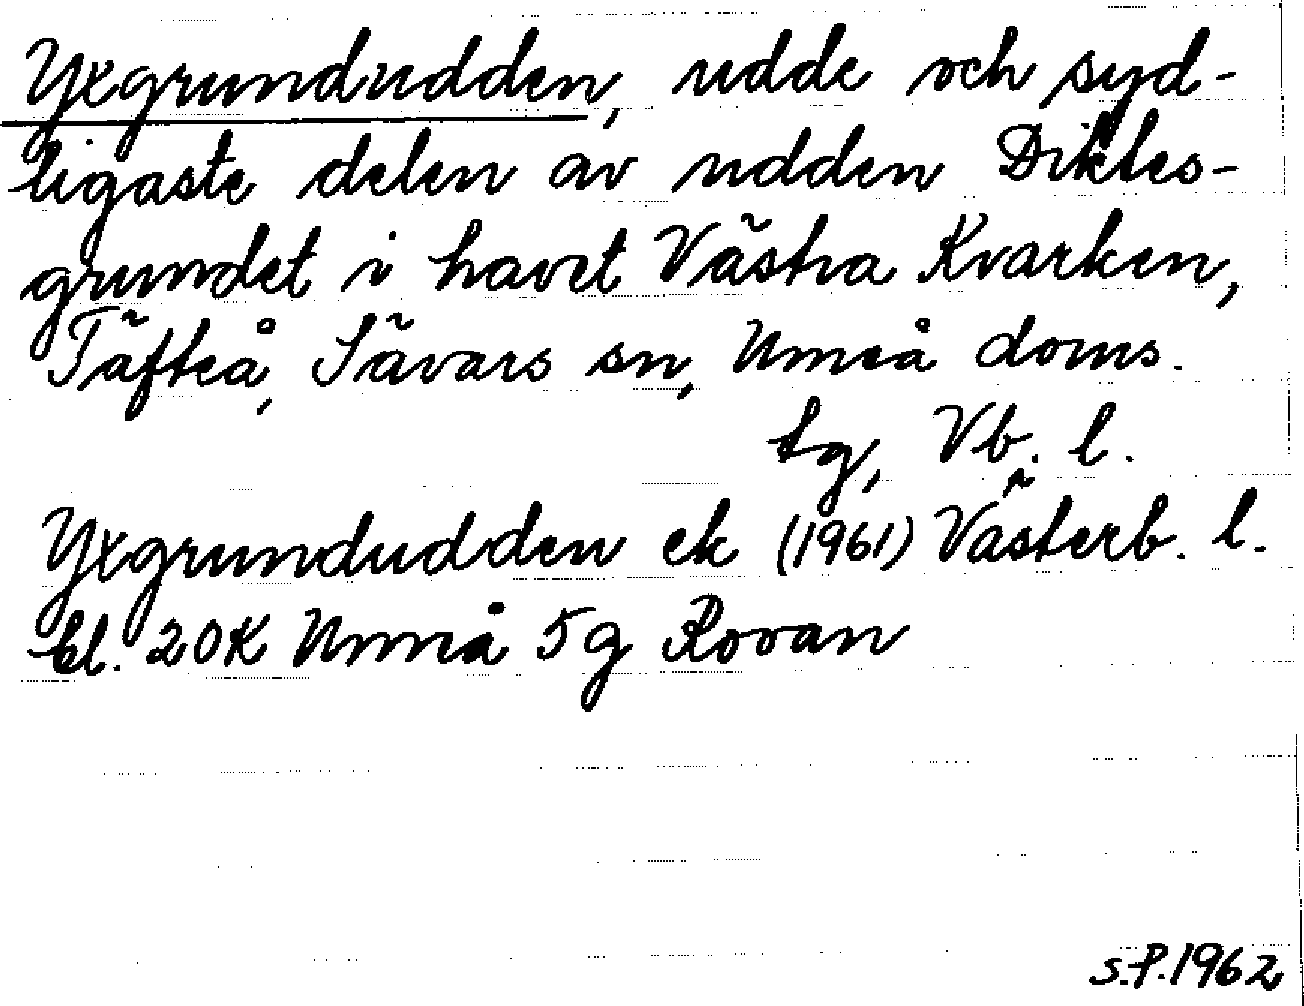 Yxgrundudden, udde och syd-
ligaste delen av udden Diktes-
grundet i havet Västra Kvarken,
Täfteå, Sävars sn, Umeå doms.
tg, Vb. l.
Yxgrundudden ek (1961) Västerb. l.
bl. 20K Umeå 5g Rovan
S.P. 1962